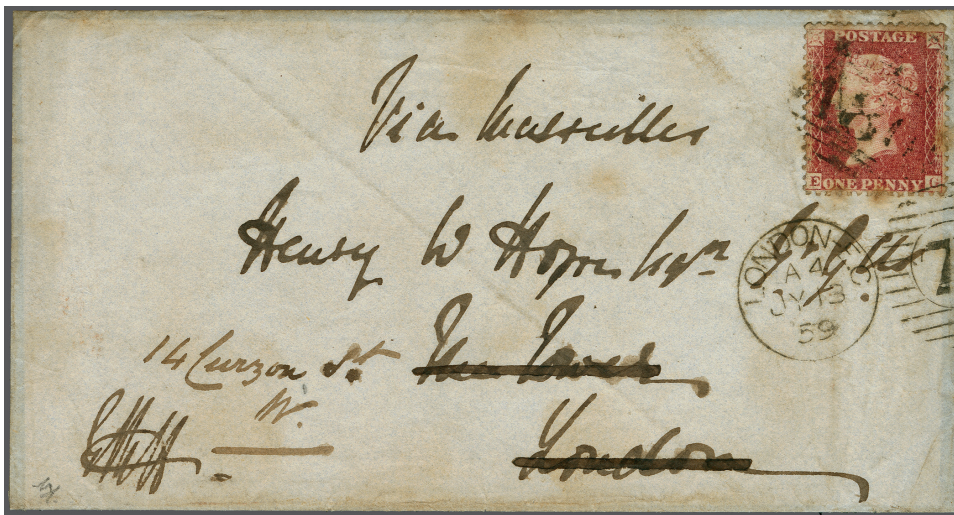 POSTAGE
E ONE PENNY G
Via Marseilles
Henry W Hope Esqre
LONDON·E.C.
A 4
JY 13
59
14 Curzon St
The Tower
W.
London